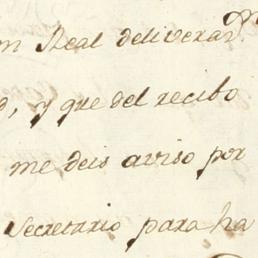 n Real deliveran
d, y que del recibo
me deis aviso por
Secretario para ha